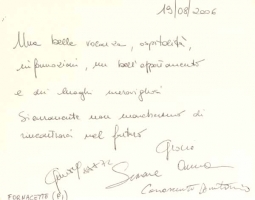 19/08/2006
Una bella vacanza, ospitalità,
informazioni, un bell'appartamento
e dei luoghi meravigliosi
Sicuramente non mancheremo di
rincontrarci nel futuro
Grazie
Simone Anna
FORNACETTE (PI)